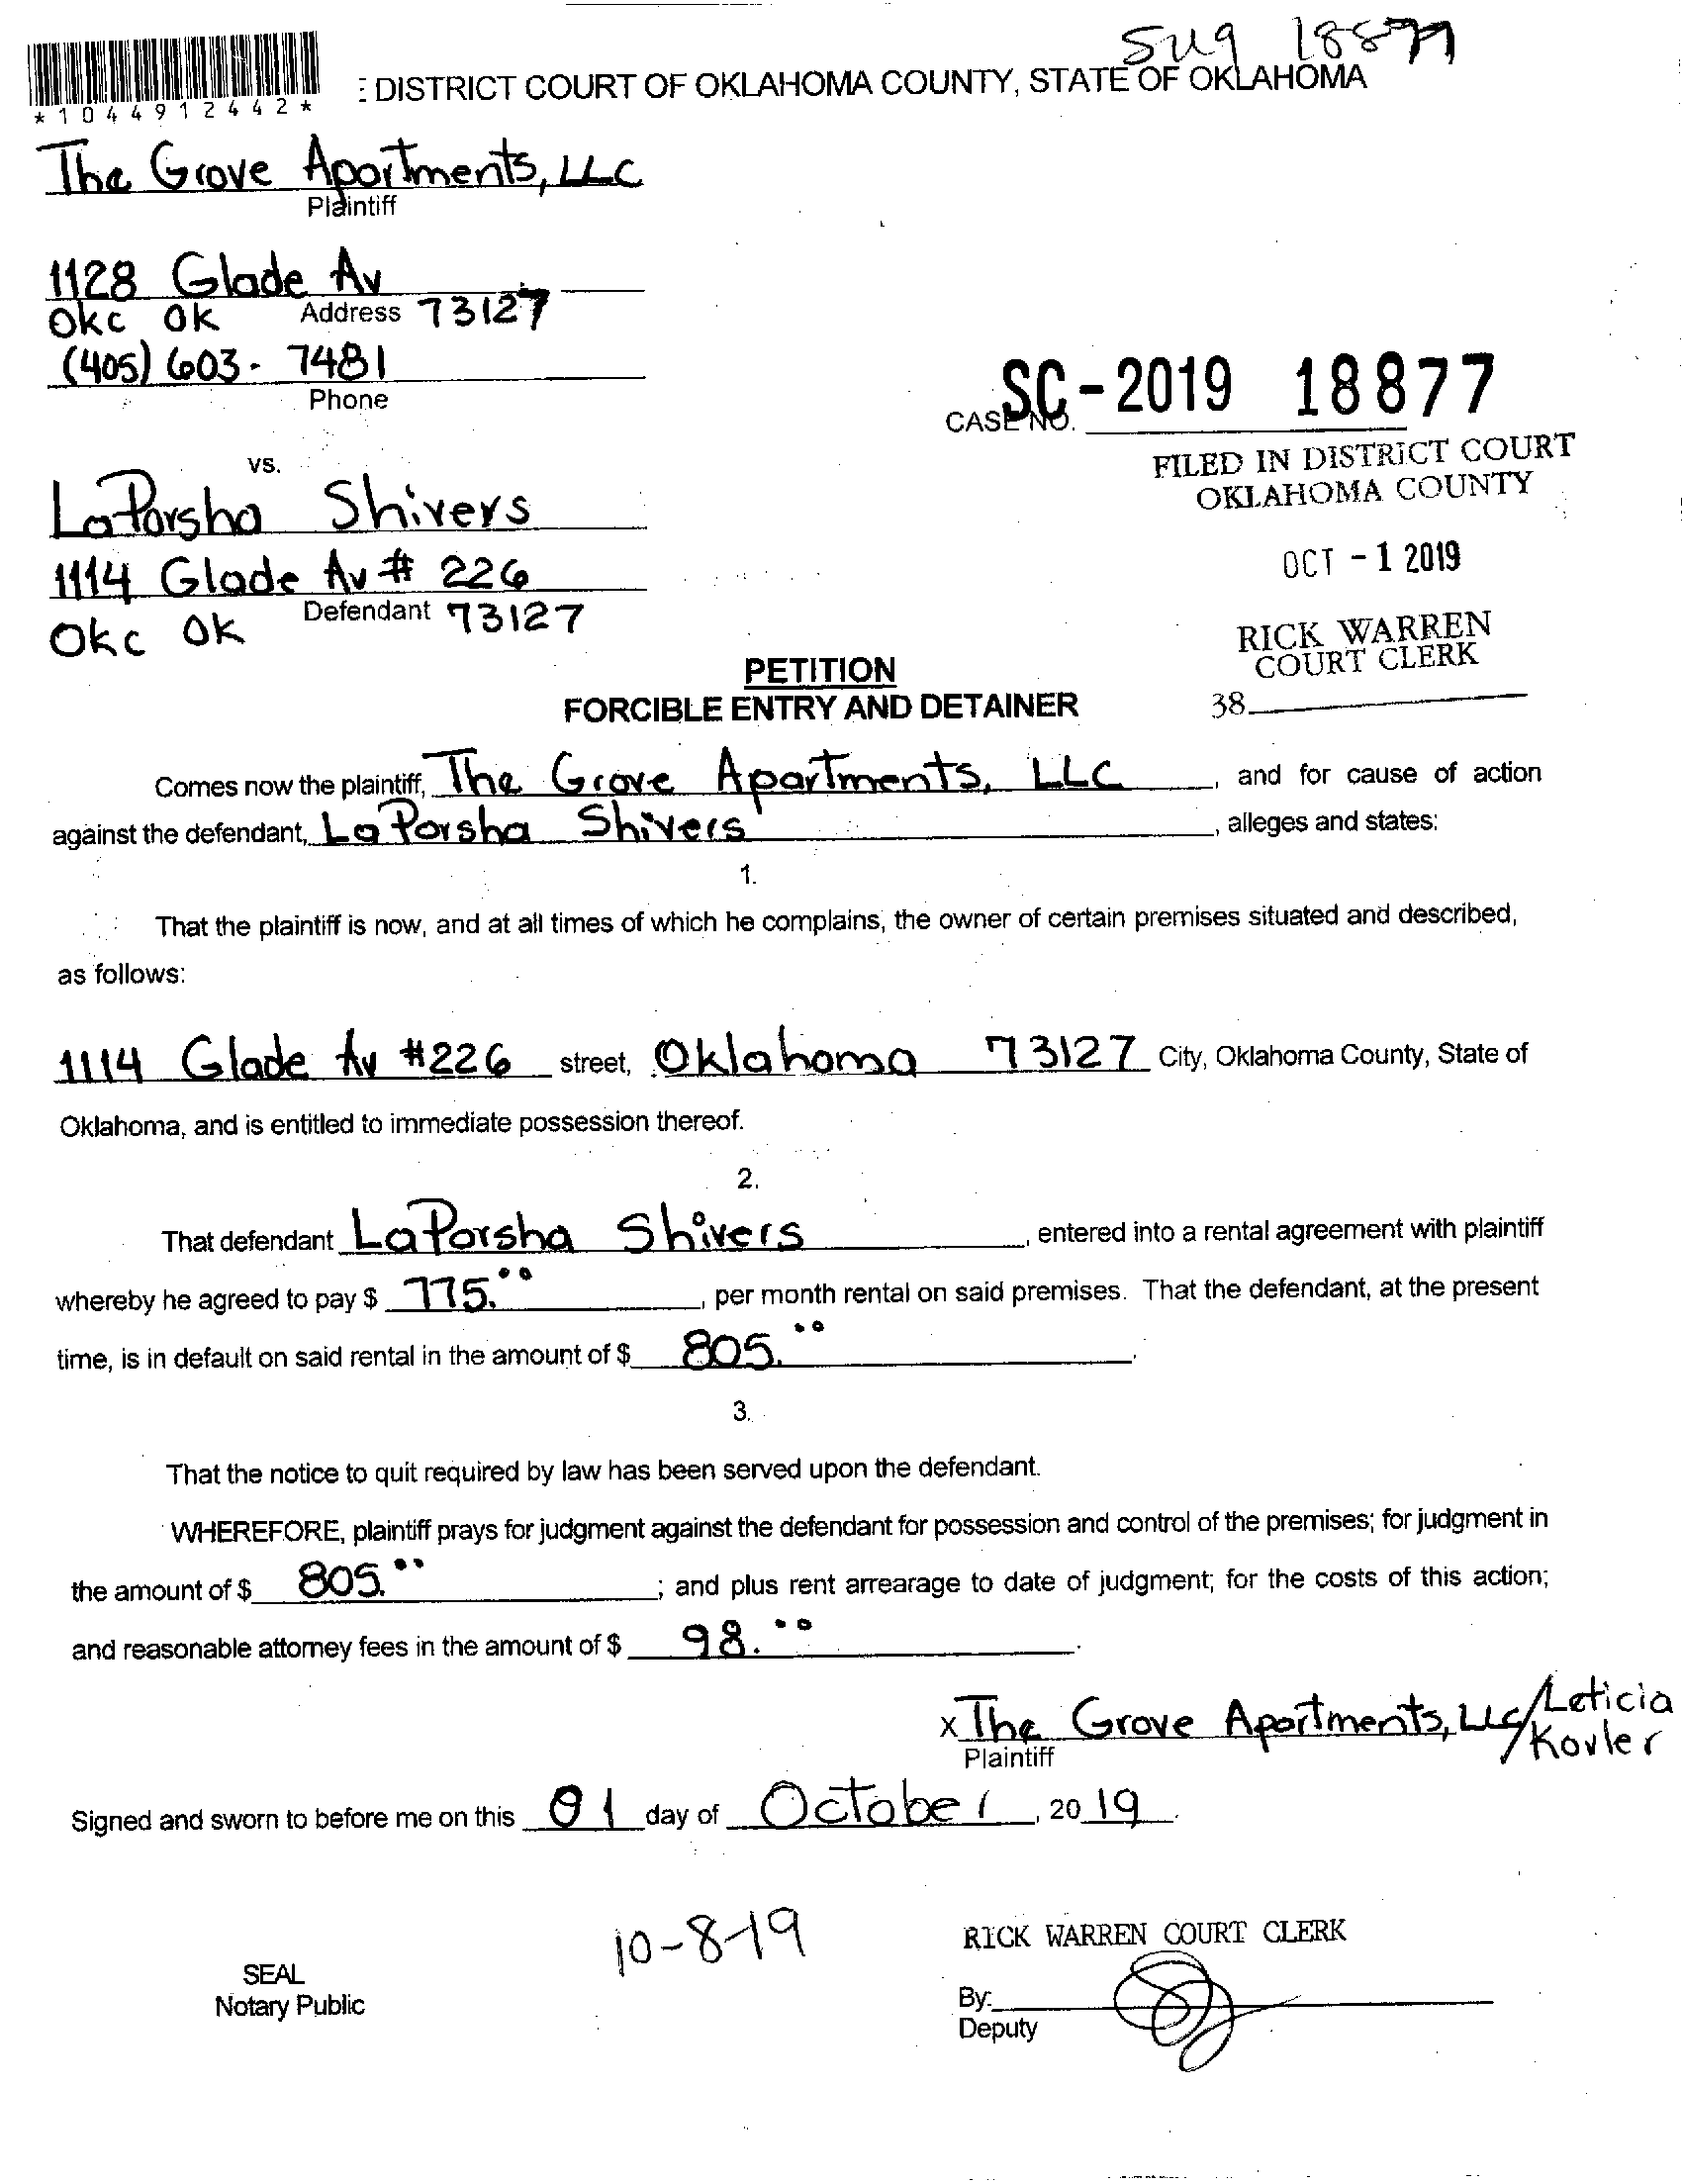 Sug 18877
: DISTRICT COURT OF OKLAHOMA COUNTY, STATE OF OKLAHOMA
*1044912442*
The Grove Apartments, LLC
Plaintiff
1128 Glade Av
Okc Ok Address 73127
(405) 603- 7481
Phone
SC-2019 18877
CASE NO.
FILED IN DISTRICT COURT
OKLAHOMA COUNTY
vs.
LaPorsha Shivers
1114 Glade Av # 226
OCT -1 2019
Defendant 73127
Okc Ok
RICK WARREN
COURT CLERK
PETITION
38
FORCIBLE ENTRY AND DETAINER
Comes now the plaintiff, The Grove Apartments, LLC, and for cause of action
against the defendant, LaPorsha Shivers, alleges and states:
1.
That the plaintiff is now, and at all times of which he complains, the owner of certain premises situated and described,
as follows:
1114 Glade Av #226 street, Oklahoma 73127 City, Oklahoma County, State of
Oklahoma, and is entitled to immediate possession thereof.
2.
That defendant LaPorsha Shivers, entered into a rental agreement with plaintiff
whereby he agreed to pay $ 775.°°, per month rental on said premises. That the defendant, at the present
time, is in default on said rental in the amount of $ 805.°°.
3.
That the notice to quit required by law has been served upon the defendant.
WHEREFORE, plaintiff prays for judgment against the defendant for possession and control of the premises; for judgment in
the amount of $ 805.°°; and plus rent arrearage to date of judgment; for the costs of this action;
and reasonable attorney fees in the amount of $ 98.°°.
x The Grove Apartments, LLC/Leticia Kovler
Plaintiff
Signed and sworn to before me on this 01 day of October, 2019.
10-8-19
RICK WARREN COURT CLERK
SEAL
Notary Public
By:
Deputy